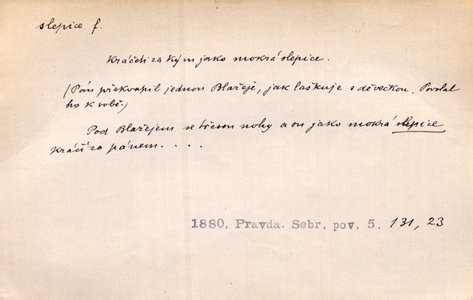 slepice f.
Kráčeti za kým jako mokrá slepice.
(Pán překvapil jednou Blažeje, jak laškuje s děvečkou. Povolal
ho k sobě.)
Pod Blažejem se třesou nohy a on jako mokrá slepice
kráčí za pánem....
1880, Pravda. Sebr, pov, 5. 131, 23